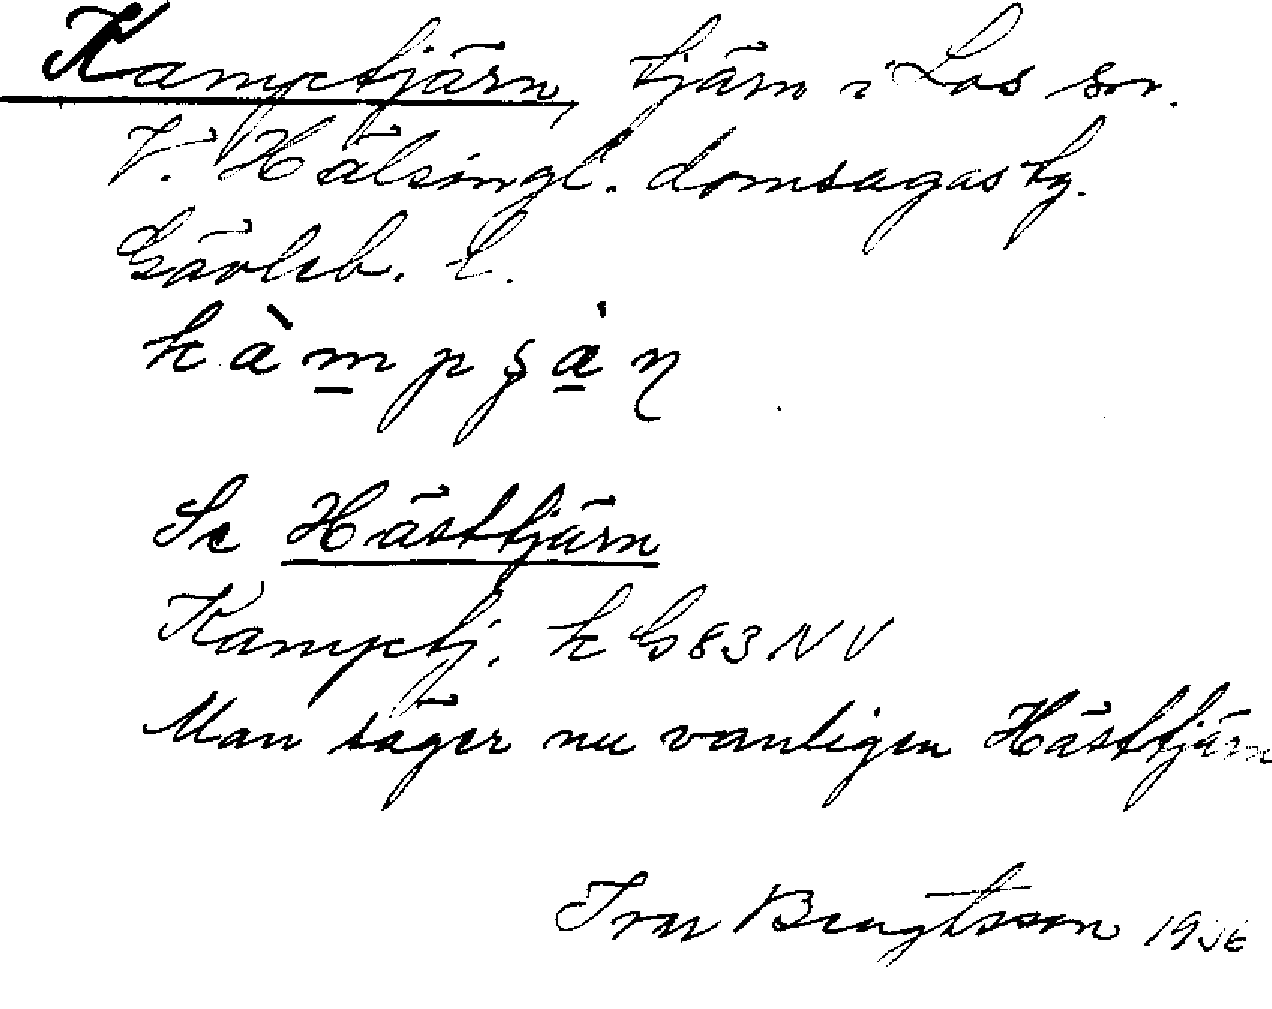 Kamptjärn, tjärn i Los sn.
V. Hälsingl. domsagas tg.
Gävleb. l.
Se Hästtjärn
Kamptj. k G 83 NV
Man säger nu vanligen Hästtjärn
Ivar Bengtsson 1936